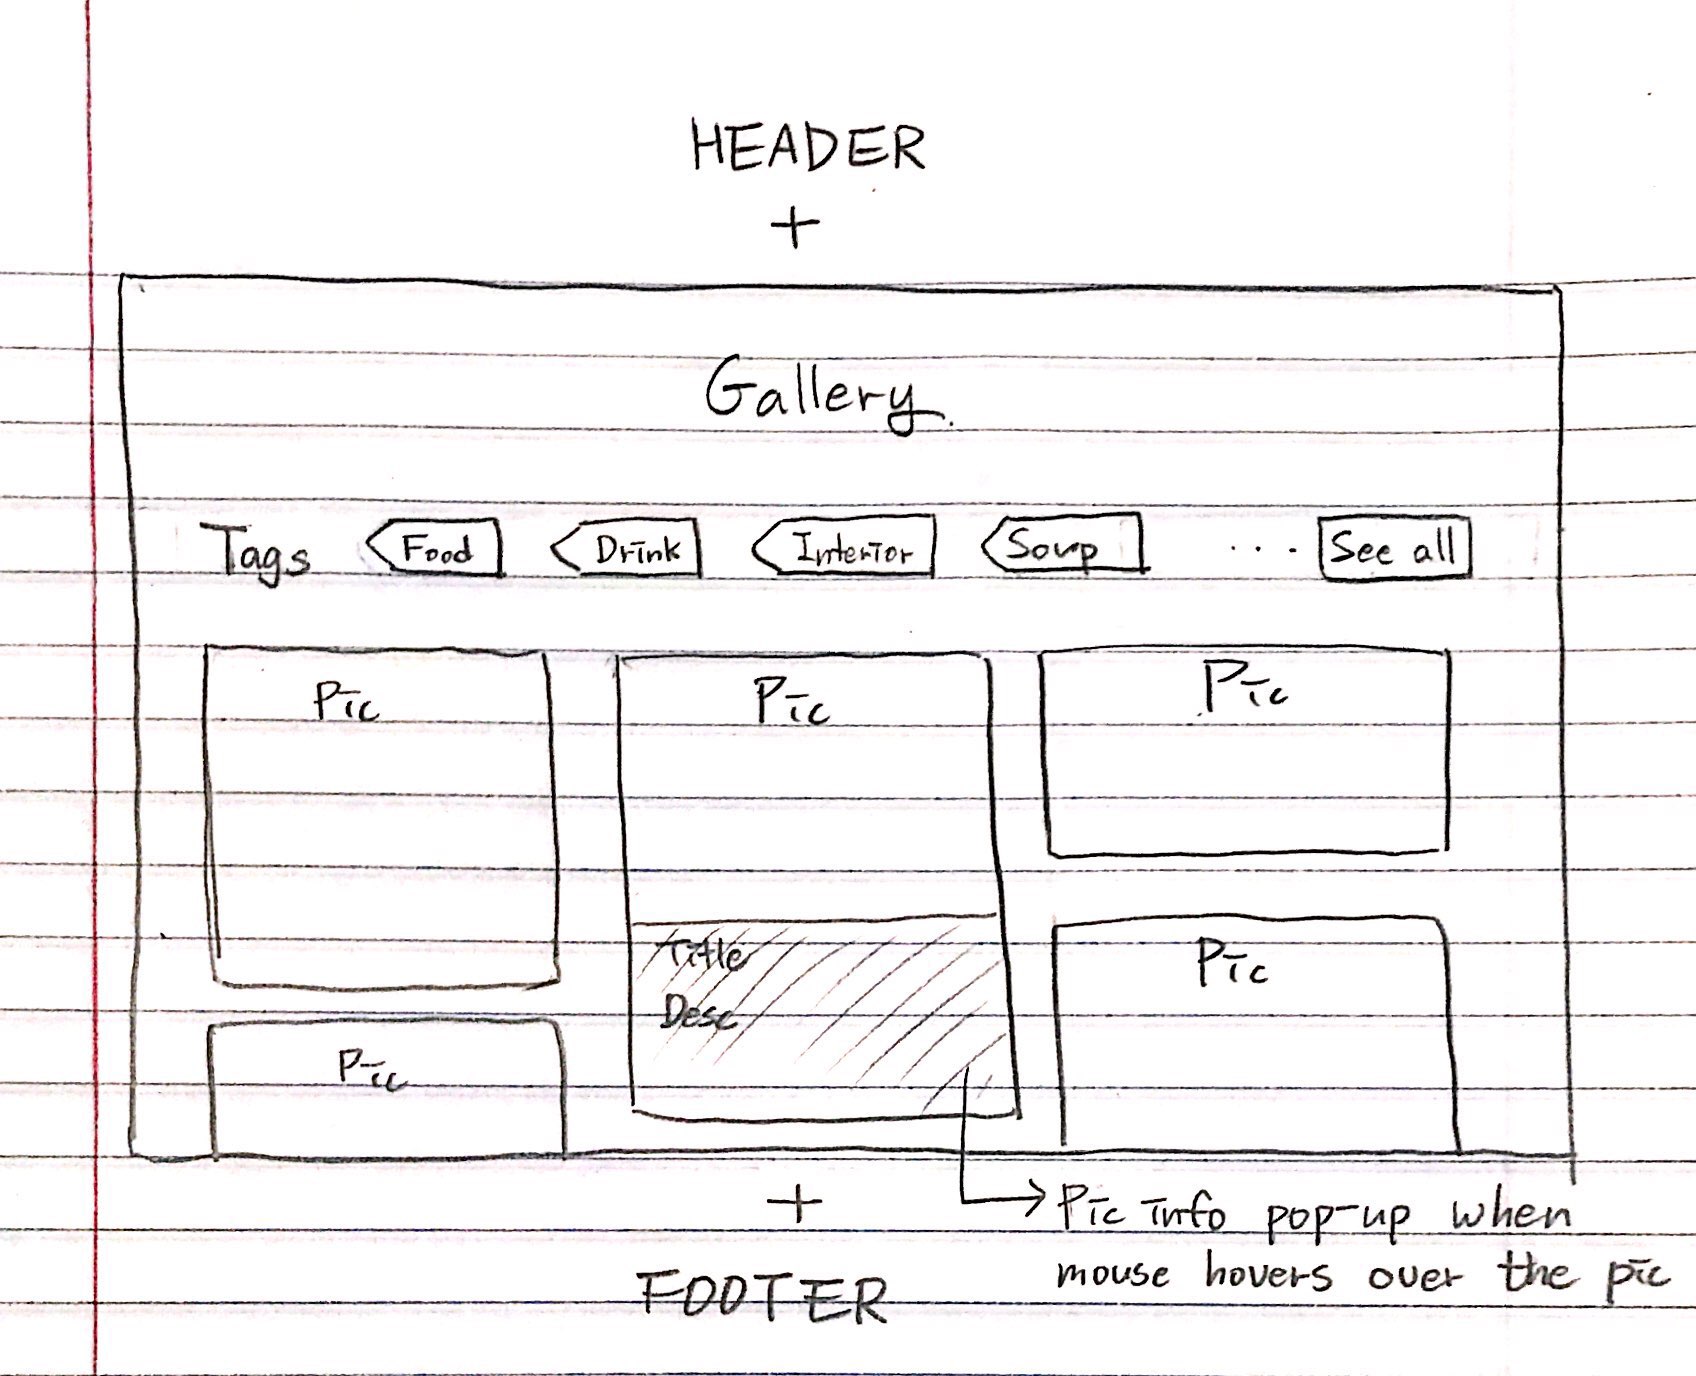 HEADER
+
Gallery
Tags Food Drink Interior Soup .... See all
Pic Pic Pic
Title
Desc
Pic
Pic
+
Pic info pop-up when
mouse hovers over the pic
FOOTER